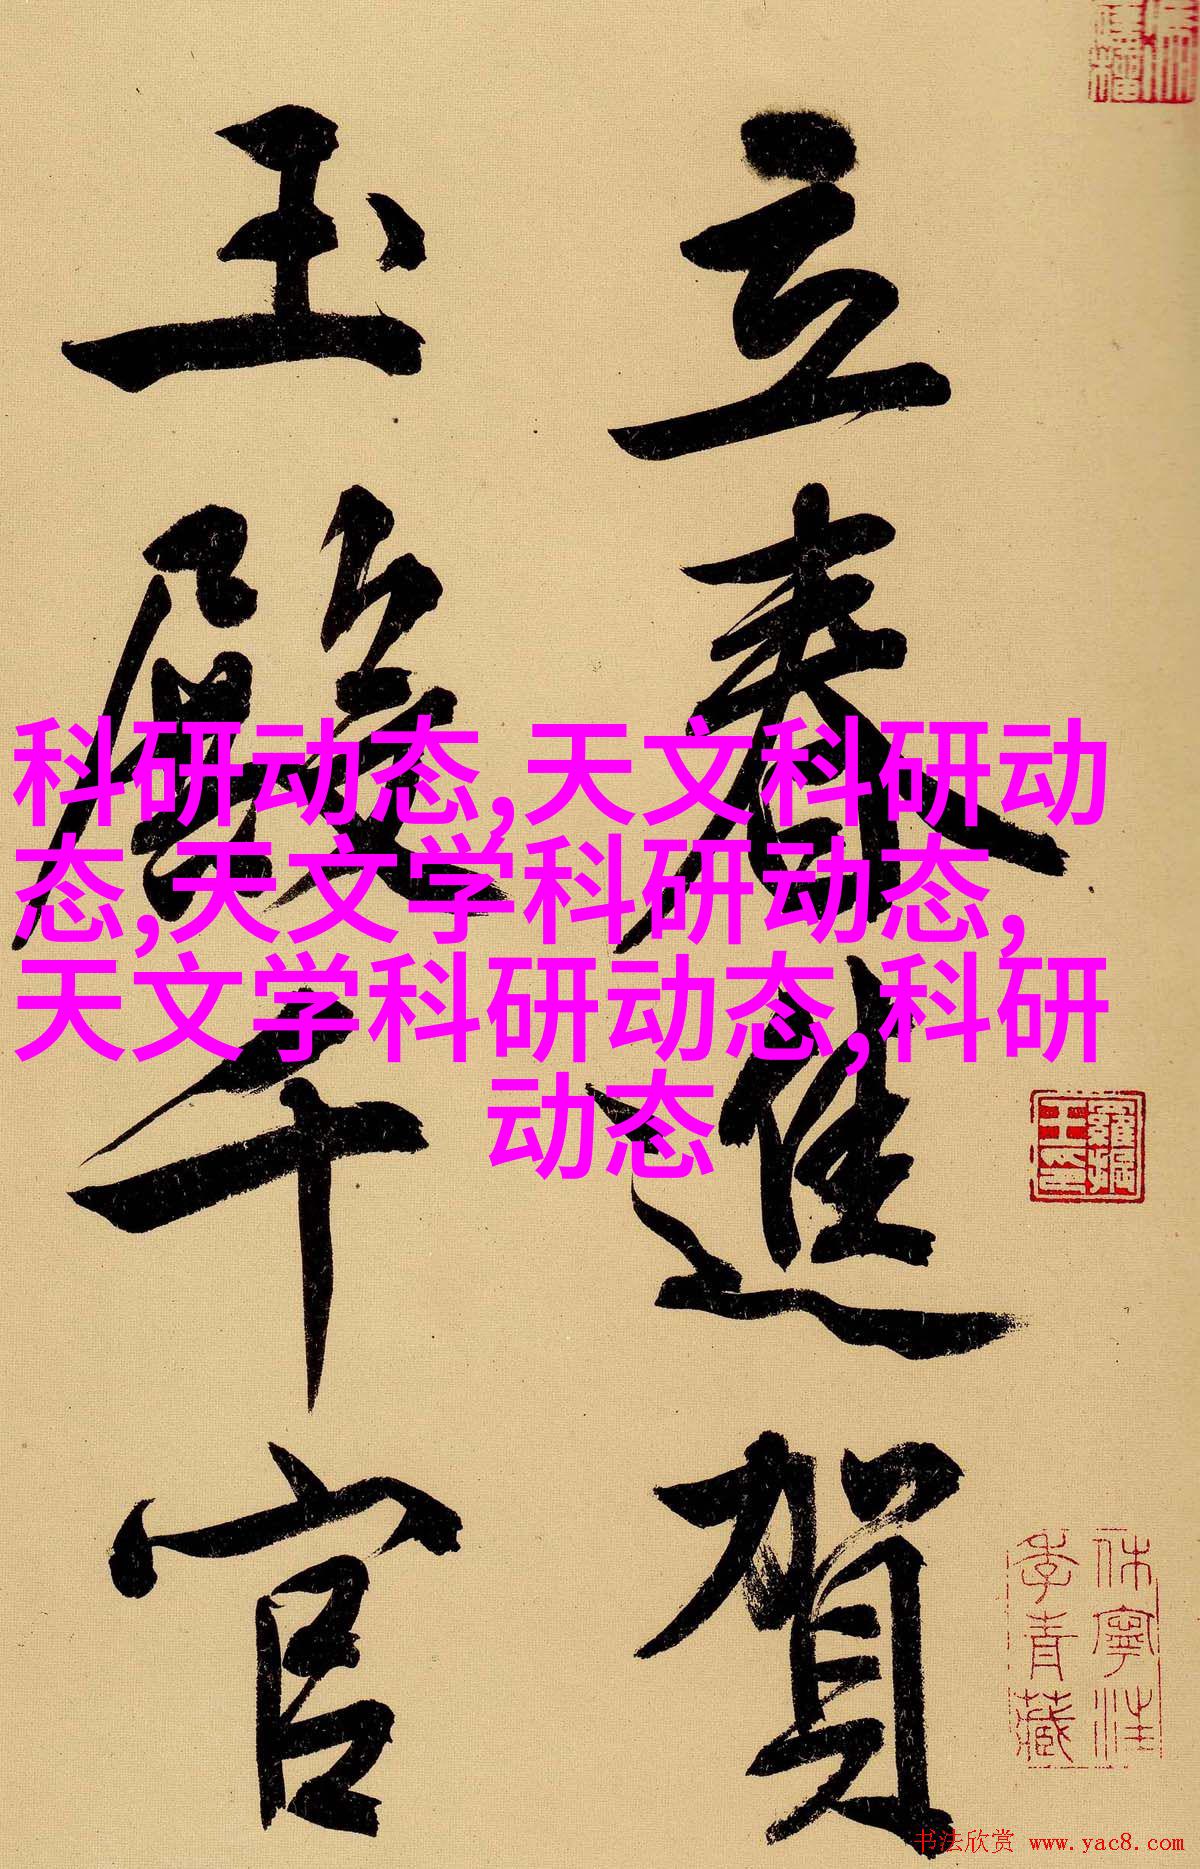 立春進賀
玉殿千官
科研动态,天文科研动
态,天文学科研动态,
天文学科研动态,科研
动态
羅振
王印
休寧汪
季青藏
书法欣赏 www.yac8.com